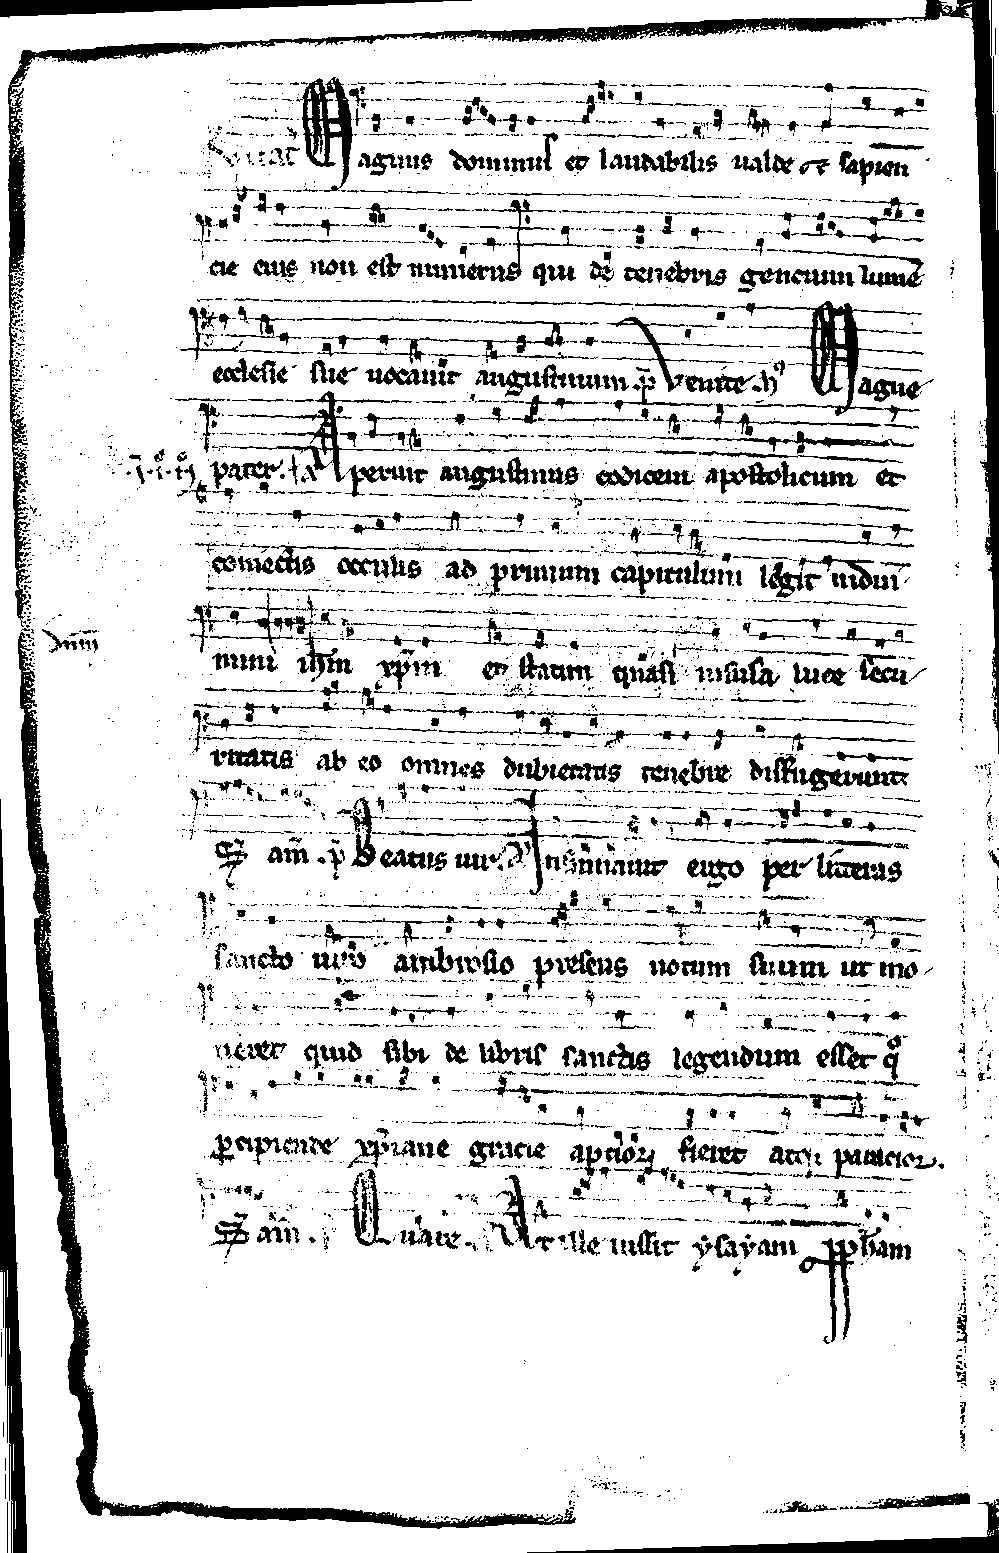 Magnus dominus et laudabilis ualde et sapien
cie eius non est numerus qui de tenebris gencium lumē
ecclesie sue uocauit augustinum . p̄ Venite . h̄ Magne
pater . Aperuit augustinus codicem apostolicum et
coniectis occulis ad primum capitulum legit induı
mini ih̄m xp̄m et statim quasi infusa luce secu
dnm̄
ritatis ab eo omnes dubietatis tenebre diffugerunt
S am̄ . p̄ Beatus uir . a Insinuauit ergo per litteras
sancto uiro ambrosio presens uotum suum ut mo
neret quid sibi de libris sanctis legendum esset q̊
ꝑcipiende xp̄iane gracie apcior fieret atq; paracior .
S am̄ . Quare . At ille iussit ysayam ꝓph̄am